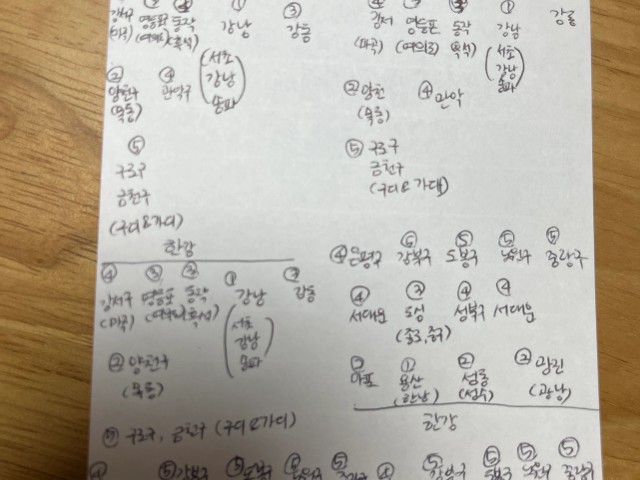 강서 영등포 동작 강남 ③ 강동
(마곡) (여의도) (흑석) (서초 강남 송파)
② 양천구 (목동) ④ 관악구
⑤
구로구
금천구
(구디&가디)
한강
④ 강서구 (마곡) ③ 영등포 (여의도) ② 동작 (흑석) ① 강남 (서초 강남 송파) 강동
② 양천구
(목동)
구로구, 금천구 (구디&가디)
강서 영등포 동작 ① 강남 강동
(마곡) (여의도) (흑석) (서초 강남 송파)
② 양천 ④ 관악
(목동)
⑤ 구로구
금천구
④ 은평구 ⑥ 강북구 ⑤ 도봉구 ⑤ 노원구 ⑤ 중랑구
④ 서대문 ③ 도심 ④ 성북구 ④ 서대문
(종로, 중구)
마포 ① 용산 ② 성동 ② 광진
(한남) (성수) (광남)
한강
⑤ 강북구 ⑤ 도봉구 노원구 ⑤ ④ 강북구 ⑤ 도봉구 ⑤ 노원구 ⑤ 중랑구